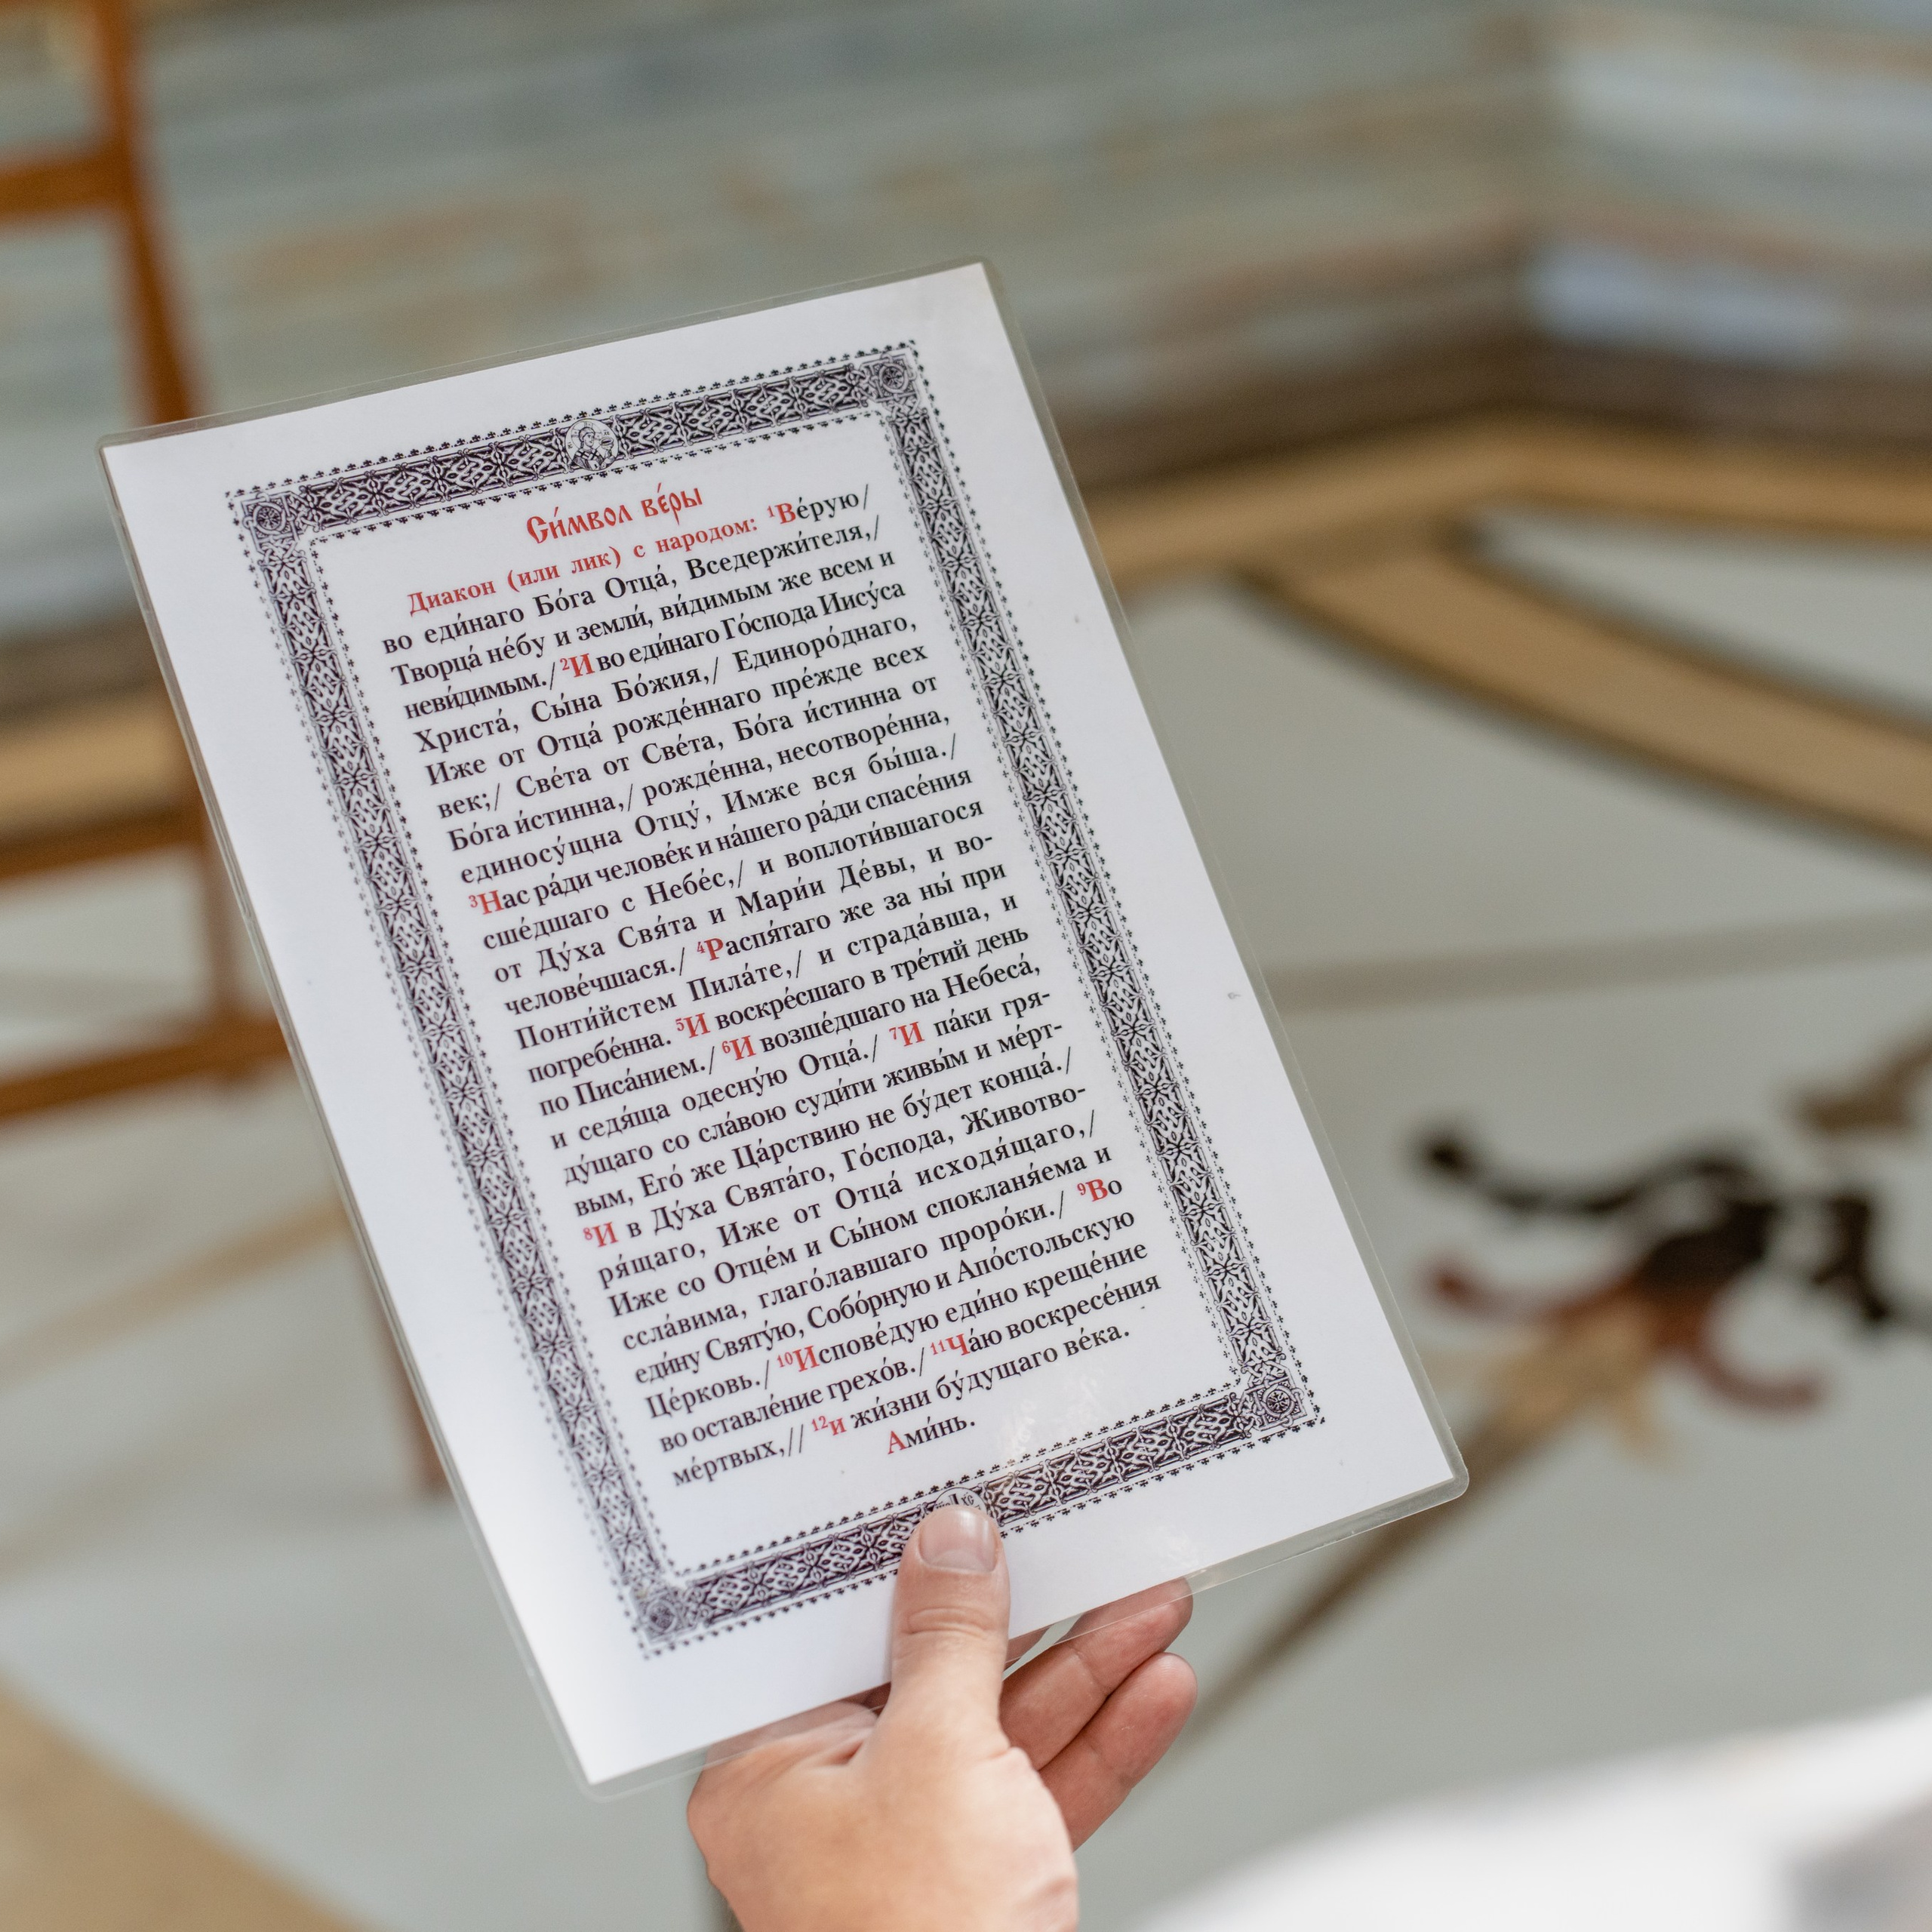 Си́мвол ве́ры
Диакон (или лик) с народом: ¹Ве́рую/
во еди́наго Бо́га Отца́, Вседержи́теля,/
Творца́ не́бу и земли́, ви́димым же всем и
неви́димым./ ²И во еди́наго Го́спода Иису́са
Христа́, Сы́на Бо́жия,/ Единоро́днаго,
Иже от Отца́ рожде́ннаго пре́жде всех
век;/ Све́та от Све́та, Бо́га и́стинна от
Бо́га и́стинна,/ рожде́нна, несотворе́нна,
единосу́щна Отцу́, Имже вся бы́ша./
³Нас ра́ди челове́к и на́шего ра́ди спасе́ния
сше́дшаго с Небе́с,/ и воплоти́вшагося
от Ду́ха Свя́та и Мари́и Де́вы, и во-
челове́чшася./ ⁴Распя́таго же за ны́ при
Понти́йстем Пила́те,/ и страда́вша, и
погребе́нна. ⁵И воскре́сшаго в тре́тий день
по Писа́нием./ ⁶И возше́дшаго на Небеса́,
и седя́ща одесну́ю Отца́./ ⁷И па́ки гря-
ду́щаго со сла́вою суди́ти живы́м и ме́рт-
вым, Его́ же Ца́рствию не бу́дет конца́./
⁸И в Ду́ха Свята́го, Го́спода, Животво-
ря́щаго, Иже от Отца́ исходя́щаго,/
Иже со Отце́м и Сы́ном спокланя́ема и
ссла́вима, глаго́лавшаго проро́ки./ ⁹Во
еди́ну Святу́ю, Собо́рную и Апо́стольскую
Це́рковь./ ¹⁰Испове́дую еди́но креще́ние
во оставле́ние грехо́в./ ¹¹Ча́ю воскресе́ния
ме́ртвых,// ¹²и жи́зни бу́дущаго ве́ка.
Ами́нь.